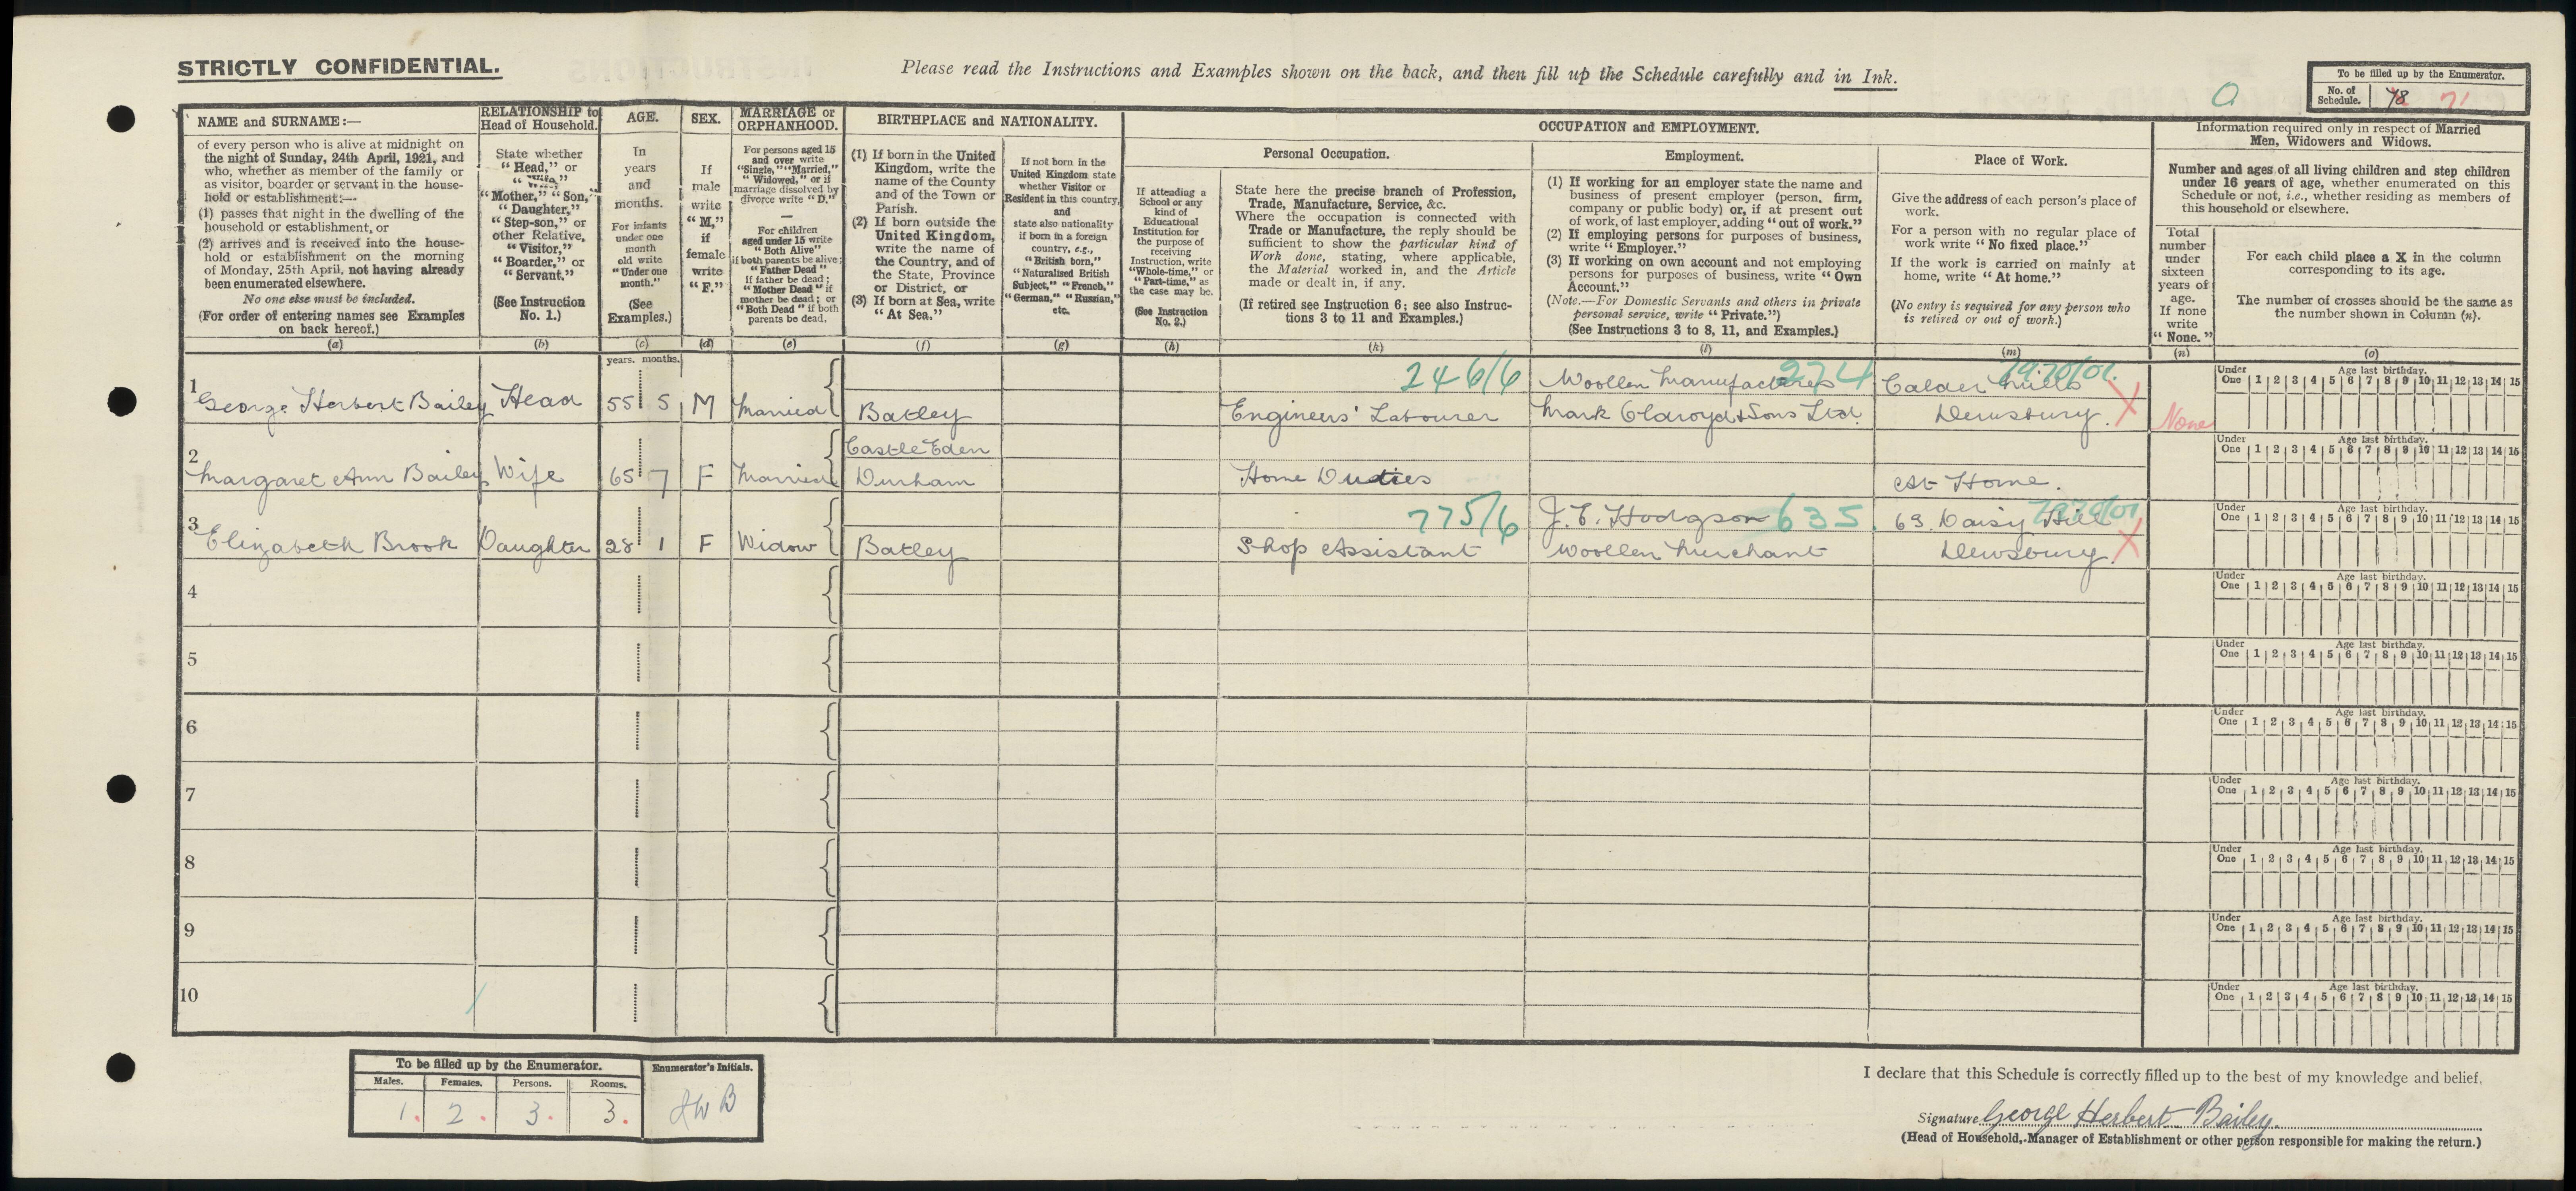 STRICTLY CONFIDENTIAL.
Please read the Instructions and Examples shown on the back, and then fill up the Schedule carefully and in Ink.
To be filled up by the Enumerator.
No. of Schedule. 78 71
NAME and SURNAME:—
of every person who is alive at midnight on
the night of Sunday, 24th April, 1921, and
who, whether as member of the family or
as visitor, boarder or servant in the house-
hold or establishment:—
(1) passes that night in the dwelling of the
household or establishment, or
(2) arrives and is received into the house-
hold or establishment on the morning
of Monday, 25th April, not having already
been enumerated elsewhere.
No one else must be included.
(For order of entering names see Examples
on back hereof.)
(a)
RELATIONSHIP to
Head of Household.
State whether
"Head," or
"Wife,"
"Mother," "Son,"
"Daughter,"
"Step-son," or
other Relative,
"Visitor,"
"Boarder," or
"Servant."
(See Instruction
No. 1.)
(b)
AGE.
In
years
and
months.
For infants
under one
month
old write
"Under one
month."
(See
Examples.)
(c)
years. months.
SEX.
If
male
write
"M,"
if
female
write
"F."
(d)
MARRIAGE or
ORPHANHOOD.
For persons aged 15
and over write
"Single," "Married,"
"Widowed," or if
marriage dissolved by
divorce write "D."
—
For children
aged under 15 write
"Both Alive"
if both parents be alive;
"Father Dead"
if father be dead;
"Mother Dead" if
mother be dead; or
"Both Dead" if both
parents be dead.
(e)
BIRTHPLACE and NATIONALITY.
(1) If born in the United
Kingdom, write the
name of the County
and of the Town or
Parish.
(2) If born outside the
United Kingdom,
write the name of
the Country, and of
the State, Province
or District, or
(3) If born at Sea, write
"At Sea."
(f)
If not born in the
United Kingdom state
whether Visitor or
Resident in this country,
and
state also nationality
if born in a foreign
country, e.g.,
"British born,"
"Naturalised British
Subject," "French,"
"German," "Russian,"
etc.
(g)
OCCUPATION and EMPLOYMENT.
If attending a
School or any
kind of
Educational
Institution for
the purpose of
receiving
Instruction, write
"Whole-time," or
"Part-time," as
the case may be.
(See Instruction
No. 2.)
(h)
Personal Occupation.
State here the precise branch of Profession,
Trade, Manufacture, Service, &c.
Where the occupation is connected with
Trade or Manufacture, the reply should be
sufficient to show the particular kind of
Work done, stating, where applicable,
the Material worked in, and the Article
made or dealt in, if any.
(If retired see Instruction 6; see also Instruc-
tions 3 to 11 and Examples.)
(k)
Employment.
(1) If working for an employer state the name and
business of present employer (person, firm,
company or public body) or, if at present out
of work, of last employer, adding "out of work."
(2) If employing persons for purposes of business,
write "Employer."
(3) If working on own account and not employing
persons for purposes of business, write "Own
Account."
(Note.—For Domestic Servants and others in private
personal service, write "Private.")
(See Instructions 3 to 8, 11, and Examples.)
(l)
Place of Work.
Give the address of each person's place of
work.
For a person with no regular place of
work write "No fixed place."
If the work is carried on mainly at
home, write "At home."
(No entry is required for any person who
is retired or out of work.)
(m)
Information required only in respect of Married
Men, Widowers and Widows.
Number and ages of all living children and step children
under 16 years of age, whether enumerated on this
Schedule or not, i.e., whether residing as members of
this household or elsewhere.
Total
number
under
sixteen
years of
age.
If none
write
"None."
(n)
For each child place a X in the column
corresponding to its age.
The number of crosses should be the same as
the number shown in Column (n).
(o)
1 George Herbert Bailey Head 55 5 M Married Batley
246/6
Engineers' Labourer
Woollen Manufacturers 274
Mark Oldroyd & Sons Ltd.
Calder Mills
Dewsbury. X
None
Under One Age last birthday. 1 2 3 4 5 6 7 8 9 10 11 12 13 14 15
2 Margaret Ann Bailey Wife 65 7 F Married Castle Eden
Durham
Home Duties
At Home.
Under One Age last birthday. 1 2 3 4 5 6 7 8 9 10 11 12 13 14 15
3 Elizabeth Brook Daughter 28 1 F Widow Batley
775/6
Shop Assistant
J. E. Hodgson 635.
Woollen Merchant
63. Daisy Hill
Dewsbury. X
Under One Age last birthday. 1 2 3 4 5 6 7 8 9 10 11 12 13 14 15
4
Under One Age last birthday. 1 2 3 4 5 6 7 8 9 10 11 12 13 14 15
5
Under One Age last birthday. 1 2 3 4 5 6 7 8 9 10 11 12 13 14 15
6
Under One Age last birthday. 1 2 3 4 5 6 7 8 9 10 11 12 13 14 15
7
Under One Age last birthday. 1 2 3 4 5 6 7 8 9 10 11 12 13 14 15
8
Under One Age last birthday. 1 2 3 4 5 6 7 8 9 10 11 12 13 14 15
9
Under One Age last birthday. 1 2 3 4 5 6 7 8 9 10 11 12 13 14 15
10
Under One Age last birthday. 1 2 3 4 5 6 7 8 9 10 11 12 13 14 15
To be filled up by the Enumerator.
Males. Females. Persons. Rooms.
1. 2. 3. 3.
Enumerator's Initials.
I declare that this Schedule is correctly filled up to the best of my knowledge and belief.
Signature George Herbert Bailey.
(Head of Household, Manager of Establishment or other person responsible for making the return.)